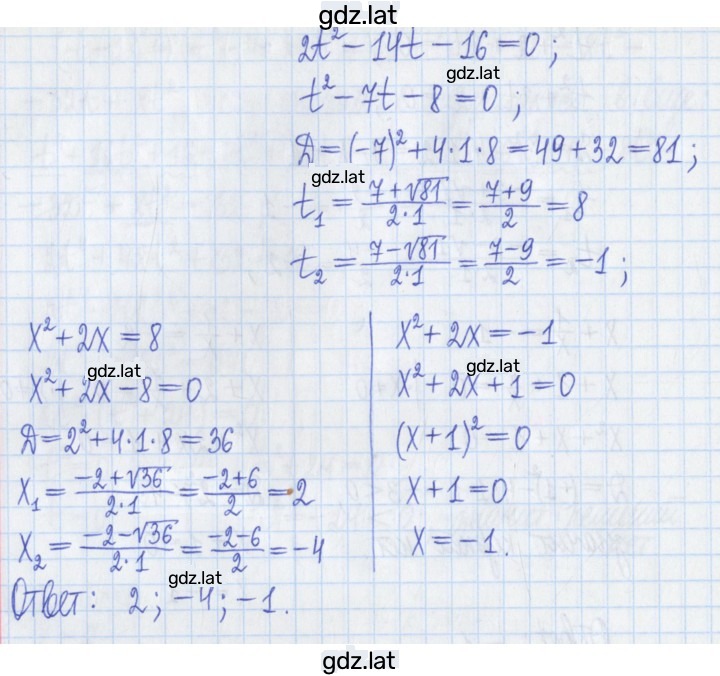 gdz.lat
2t² − 14t − 16 = 0 ;
gdz.lat
t² − 7t − 8 = 0 ;
Д = (−7)² + 4·1·8 = 49 + 32 = 81 ;
gdz.lat
t₁ = (7 + √81)/(2·1) = (7+9)/2 = 8
t₂ = (7 − √81)/(2·1) = (7−9)/2 = −1 ;
x² + 2x = 8
gdz.lat
x² + 2x − 8 = 0
Д = 2² + 4·1·8 = 36
x₁ = (−2 + √36)/(2·1) = (−2+6)/2 = 2
x₂ = (−2 − √36)/(2·1) = (−2−6)/2 = −4
x² + 2x = −1
gdz.lat
x² + 2x + 1 = 0
(x + 1)² = 0
x + 1 = 0
x = −1.
gdz.lat
Ответ: 2 ; −4 ; −1.
gdz.lat